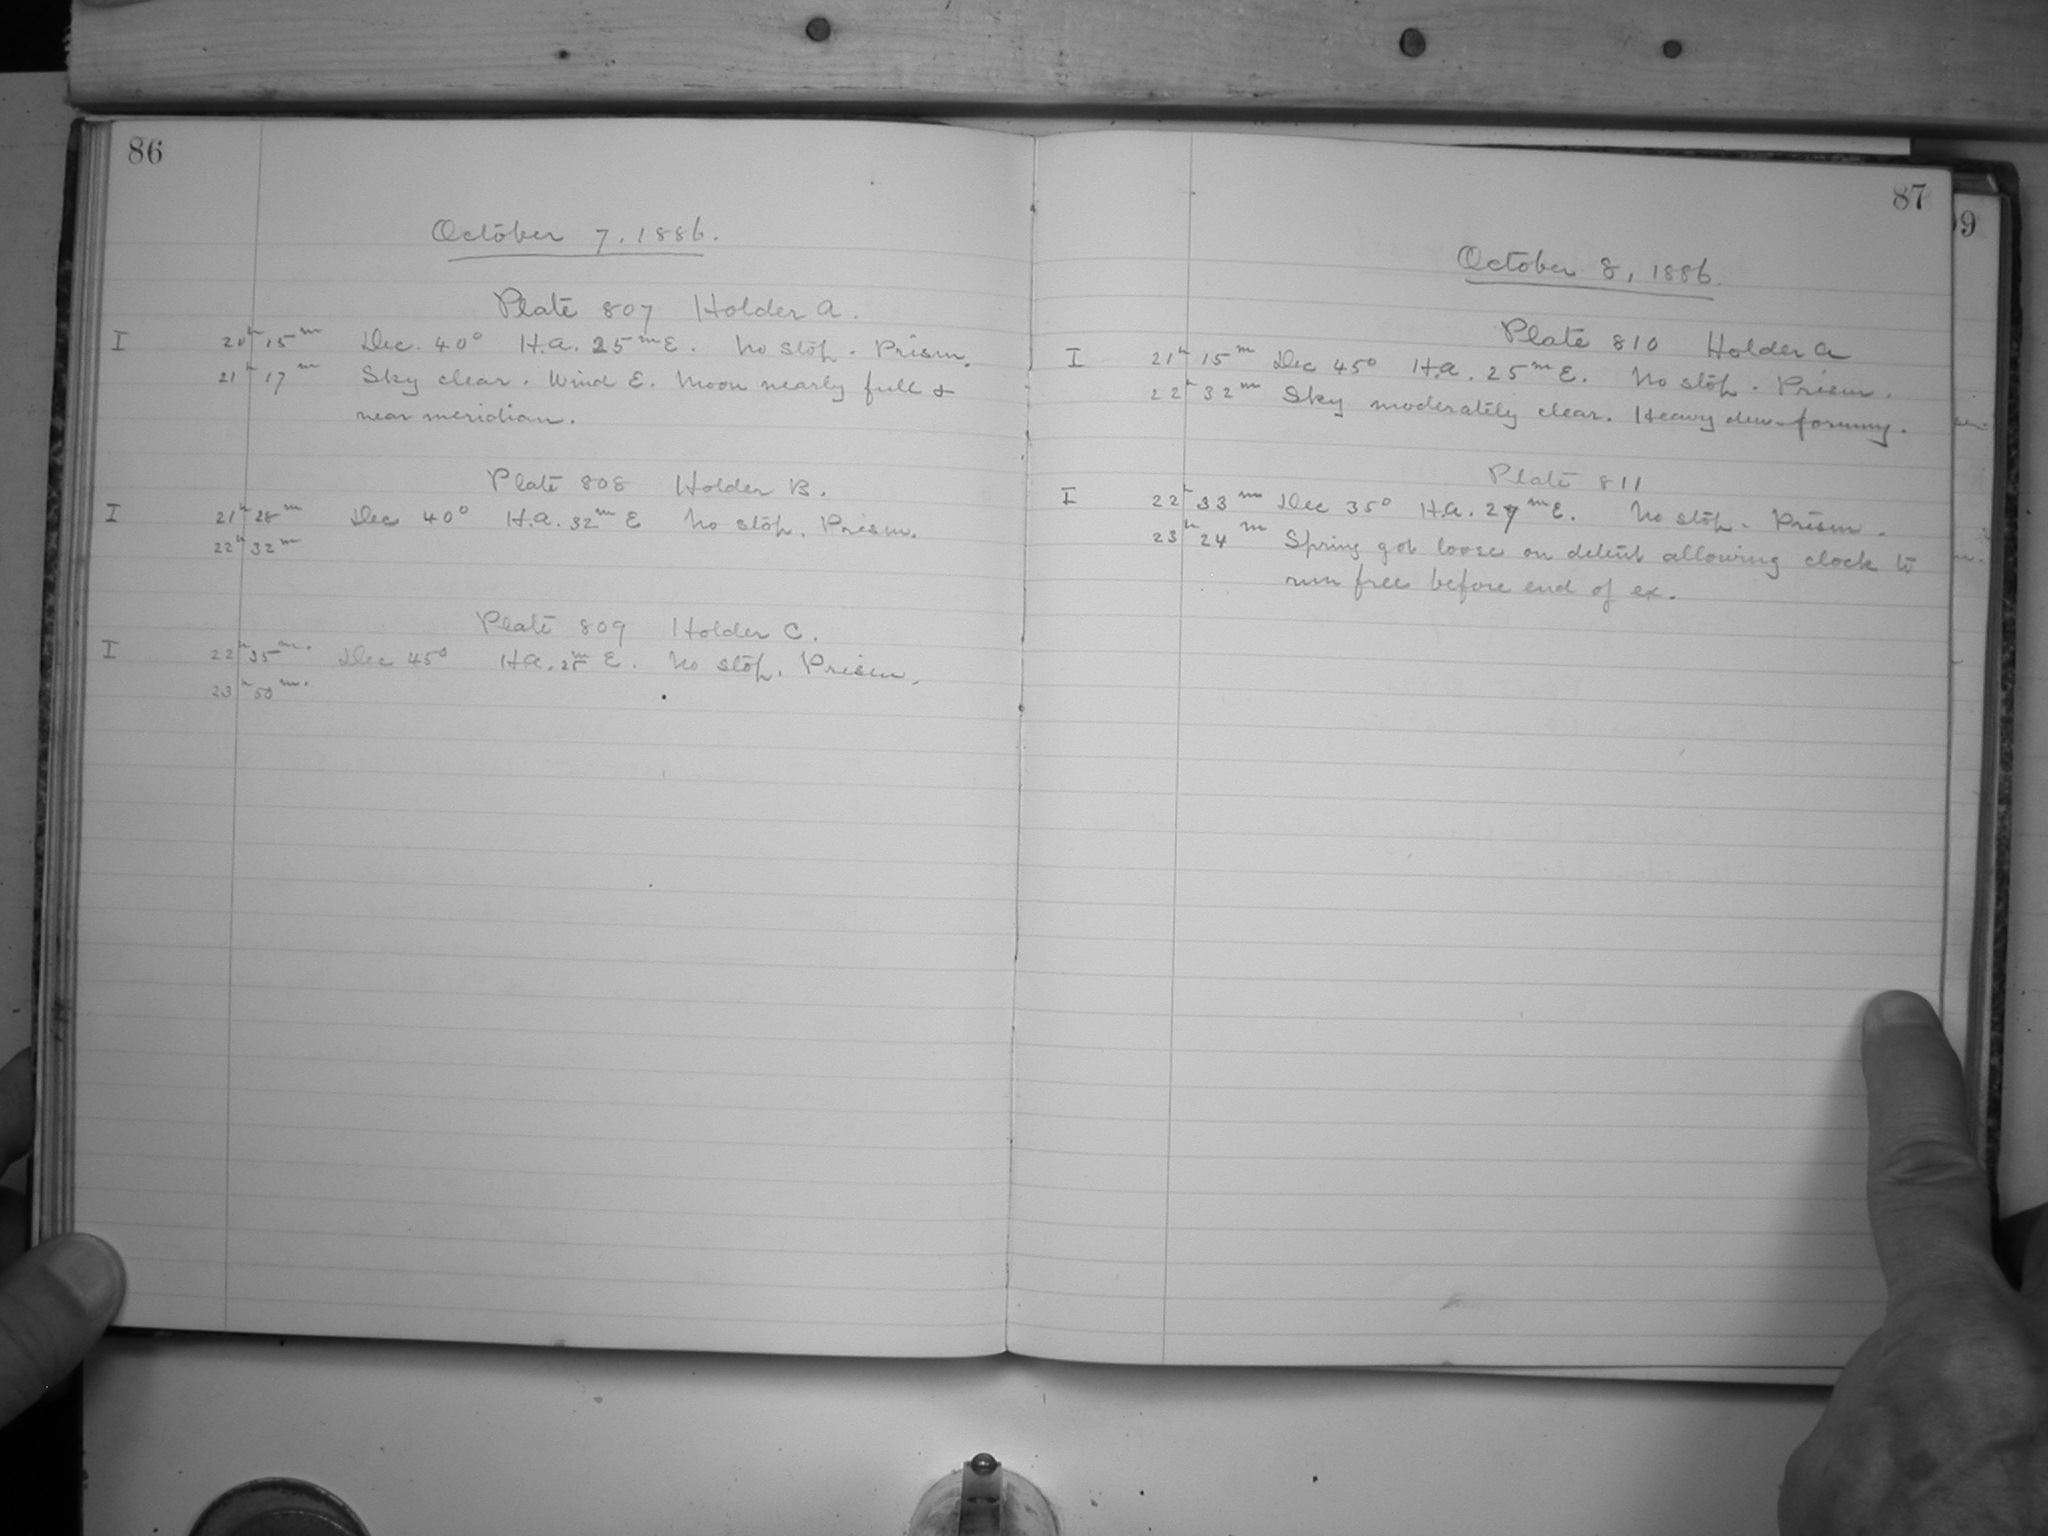 86
October 7, 1886.
Plate 807 Holder A.
I 20h 15m Dec. 40° H.A. 25m E. No stop. Prism.
21h 17m Sky clear. Wind E. Moon nearly full &
near meridian.
Plate 808 Holder B.
I 21h 28m Dec 40° H.A. 32m E No stop. Prism.
22h 32m
Plate 809 Holder C.
I 22h 35m. Dec 45° H.A. 25m E. No stop. Prism.
23h 50m.
87
October 8, 1886.
Plate 810 Holder A
I 21h 15m Dec 45° H.A. 25m E. No stop. Prism.
22h 32m Sky moderately clear. Heavy dew forming.
Plate 811
I 22h 33m Dec 35° H.A. 27m E. No stop. Prism.
23h 24m Spring got loose on detent allowing clock to
run free before end of ex.
9